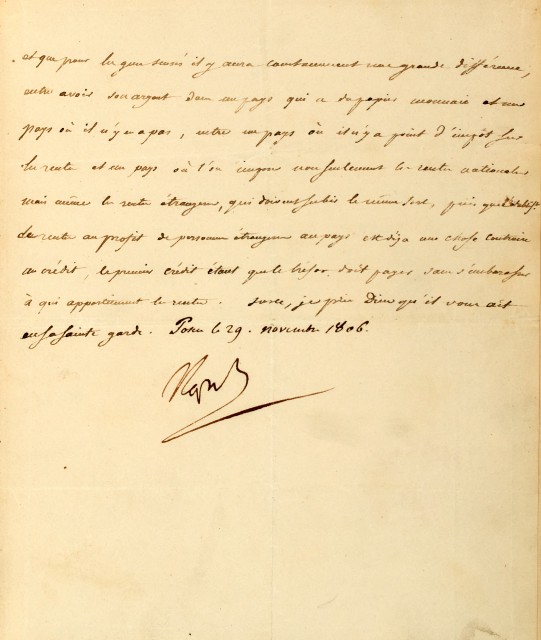 et que pour les gens sensés il y aura constamment une grande différence,
entre avoir son argent dans un pays qui a du papier monnaie et un
pays où il n'y en a pas, entre un pays où il n'y a point d'impôt sur
les rentes et un pays où l'on impose non seulement les rentes nationales
mais même les rentes étrangères, qui doivent subir le même sort, puis que
de rente au profit de personnes étrangères au pays est déja une chose contraire
au crédit, le premier crédit étant que le trésor doit payer sans s'embarasser
à qui appartiennent les rentes. Surce, je prie Dieu qu'il vous ait
en sa sainte garde. Posen le 29. novembre 1806.